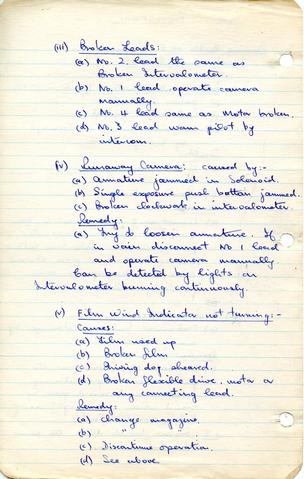 (iii) Broken Leads:
(a) No. 2. lead the same as
Broken Intervalometer.
(b) No. 1 lead operate camera
manually.
(c) No. 4 lead same as Motor broken.
(d) No. 3 lead warn pilot by
intercom.
(iv) Runaway Camera: caused by:-
(a) Armature jammed in Solenoid.
(b) Single exposure push button jammed.
(c) Broken clockwork in intervalometer
Remedy:
(a) Try to loosen armature. If
in vain disconnect No 1 lead
and operate camera manually
Can be detected by lights on
Intervalometer burning continuously.
(v) Film Wind Indicator not turning:-
Causes:
(a) Film used up
(b) Broken film
(c) Driving dog sheared.
(d) Broken flexible drive, motor or
any connecting lead.
Remedy:
(a) change magazine.
(b) "
(c) Discontinue operation.
(d) See above